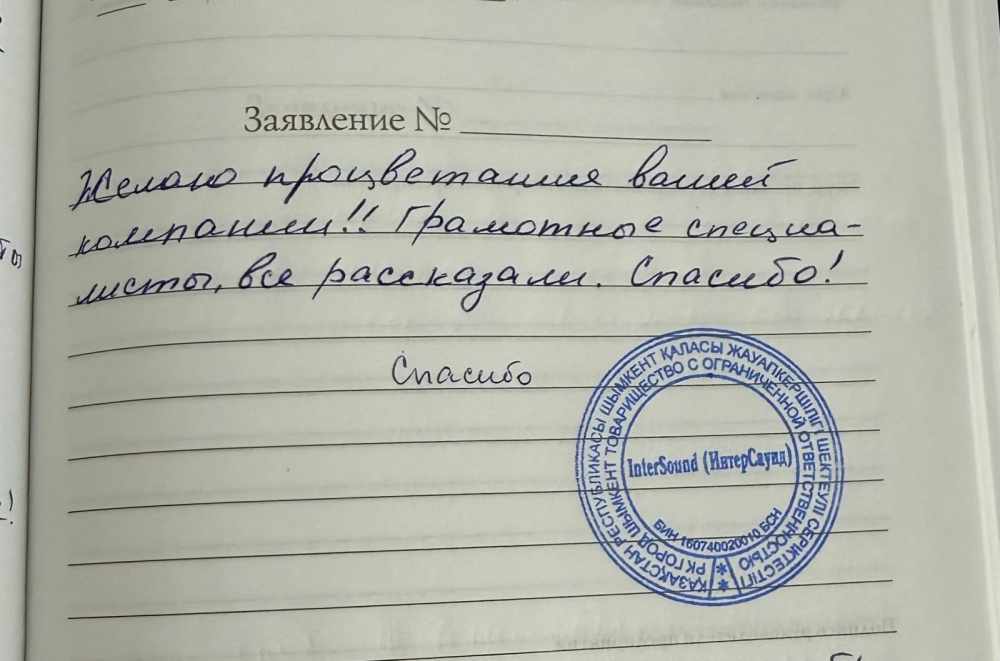 Заявление №
Желаю процветания вашей
компании!! Грамотные специа-
листы, все рассказали. Спасибо!
Спасибо
ҚАЗАҚСТАН РЕСПУБЛИКАСЫ ШЫМКЕНТ ҚАЛАСЫ ЖАУАПКЕРШІЛІГІ ШЕКТЕУЛІ СЕРІКТЕСТІГІ
РК ГОРОД ШЫМКЕНТ ТОВАРИЩЕСТВО С ОГРАНИЧЕННОЙ ОТВЕТСТВЕННОСТЬЮ
InterSound (ИнтерСаунд)
БИН 160740020010 БСН